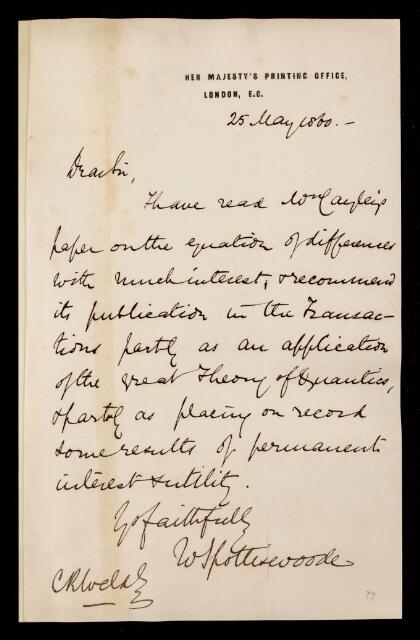 HER MAJESTY'S PRINTING OFFICE,
LONDON, E.C.
25 May 1860. –
Dear Sir,
I have read Mr Cayley's
paper on the equation of differences
with much interest, & recommend
its publication in the Transac-
tions partly as an application
of the great Theory of Quantics,
& partly as placing on record
some results of permanent
interest & utility.
Yrs faithfully
W Spottiswoode
C R Weld